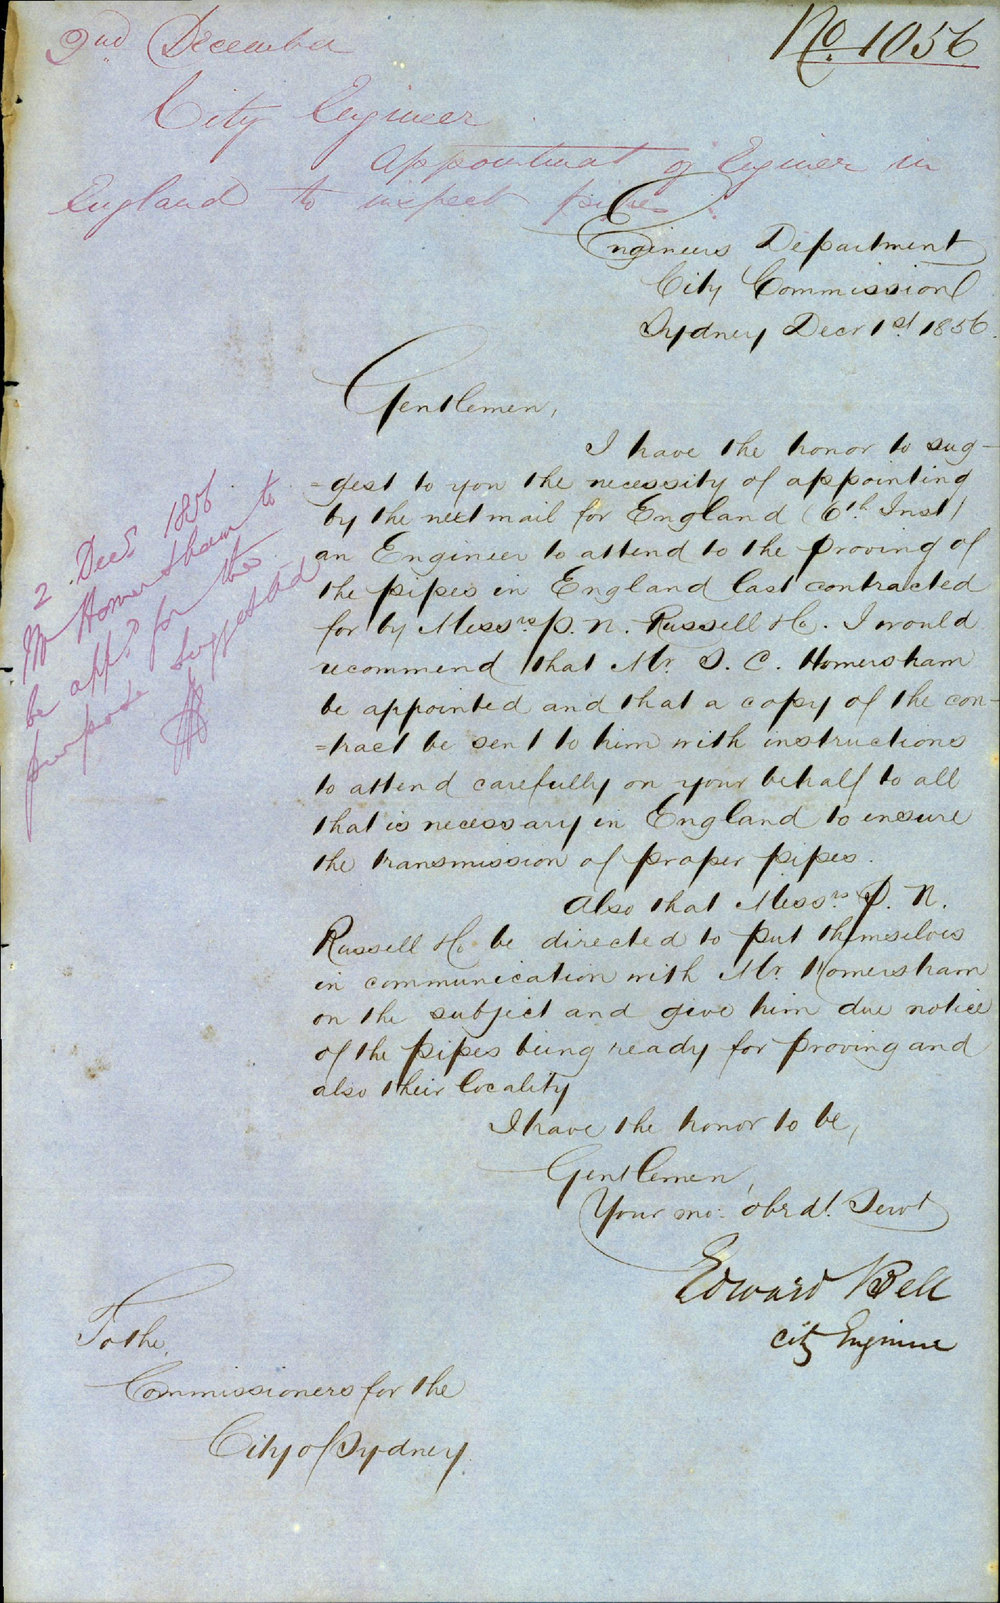 No. 1056
2nd December
City Engineer
Appointment of Engineer in
England to inspect pipes
Engineers Department
City Commission
Sydney Decr 1st. 1856.
Gentlemen,
I have the honor to sug-
=gest to you the necessity of appointing
by the next mail for England (6th Inst)
an Engineer to attend to the proving of
the pipes in England last contracted
for by Messrs. P. N. Russell & Co. I would
recommend that Mr. S. C. Homersham
be appointed and that a copy of the con-
=tract be sent to him with instructions
to attend carefully on your behalf to all
that is necessary in England to ensure
the transmission of proper pipes.
Also that Messrs. P. N.
Russell & Co. be directed to put themselves
in communication with Mr. Homersham
on the subject and give him due notice
of the pipes being ready for proving and
also their locality
I have the honor to be,
Gentlemen,
Your mo: obedt. Servt
Edward Bell
City Engineer
2. Decr 1856
Mr Homersham to
be appd. for the
purpose suggested
To the,
Commissioners for the
City of Sydney.